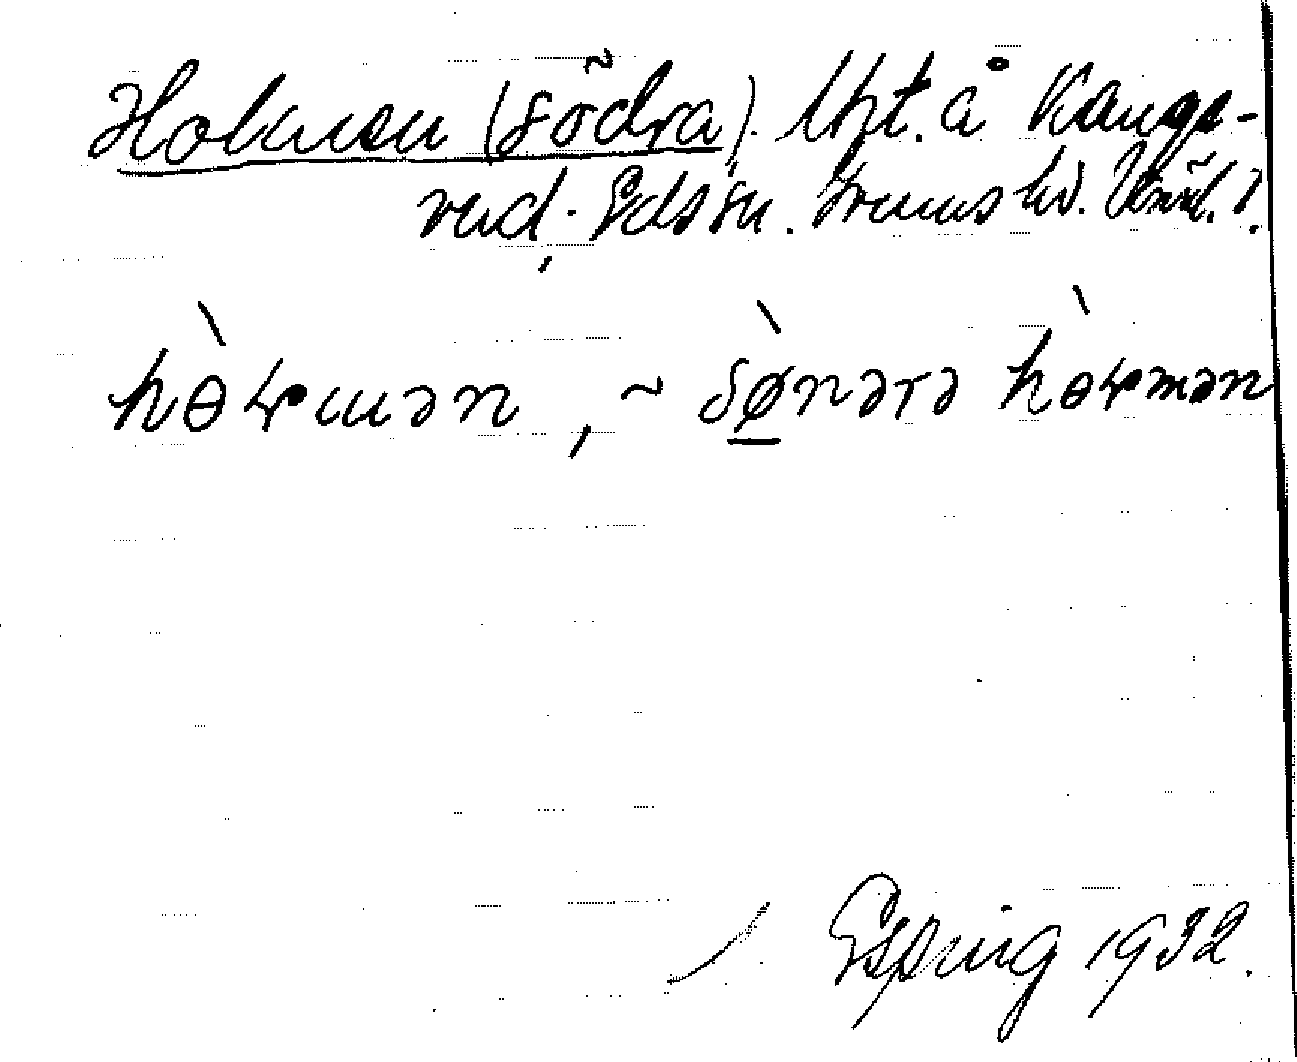 Holmen (Södra). Lht. å Kange-
rud. Eds sn. Grums hd. Värml. l.
hòɽmən, ~ sø̀nərə hòɽmən
Espring 1932.